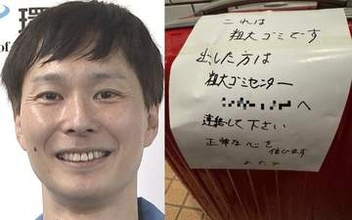 環
of
これは
粗大ゴミです
出した方は
粗大ゴミセンター
へ
連絡して下さい
正常な心を